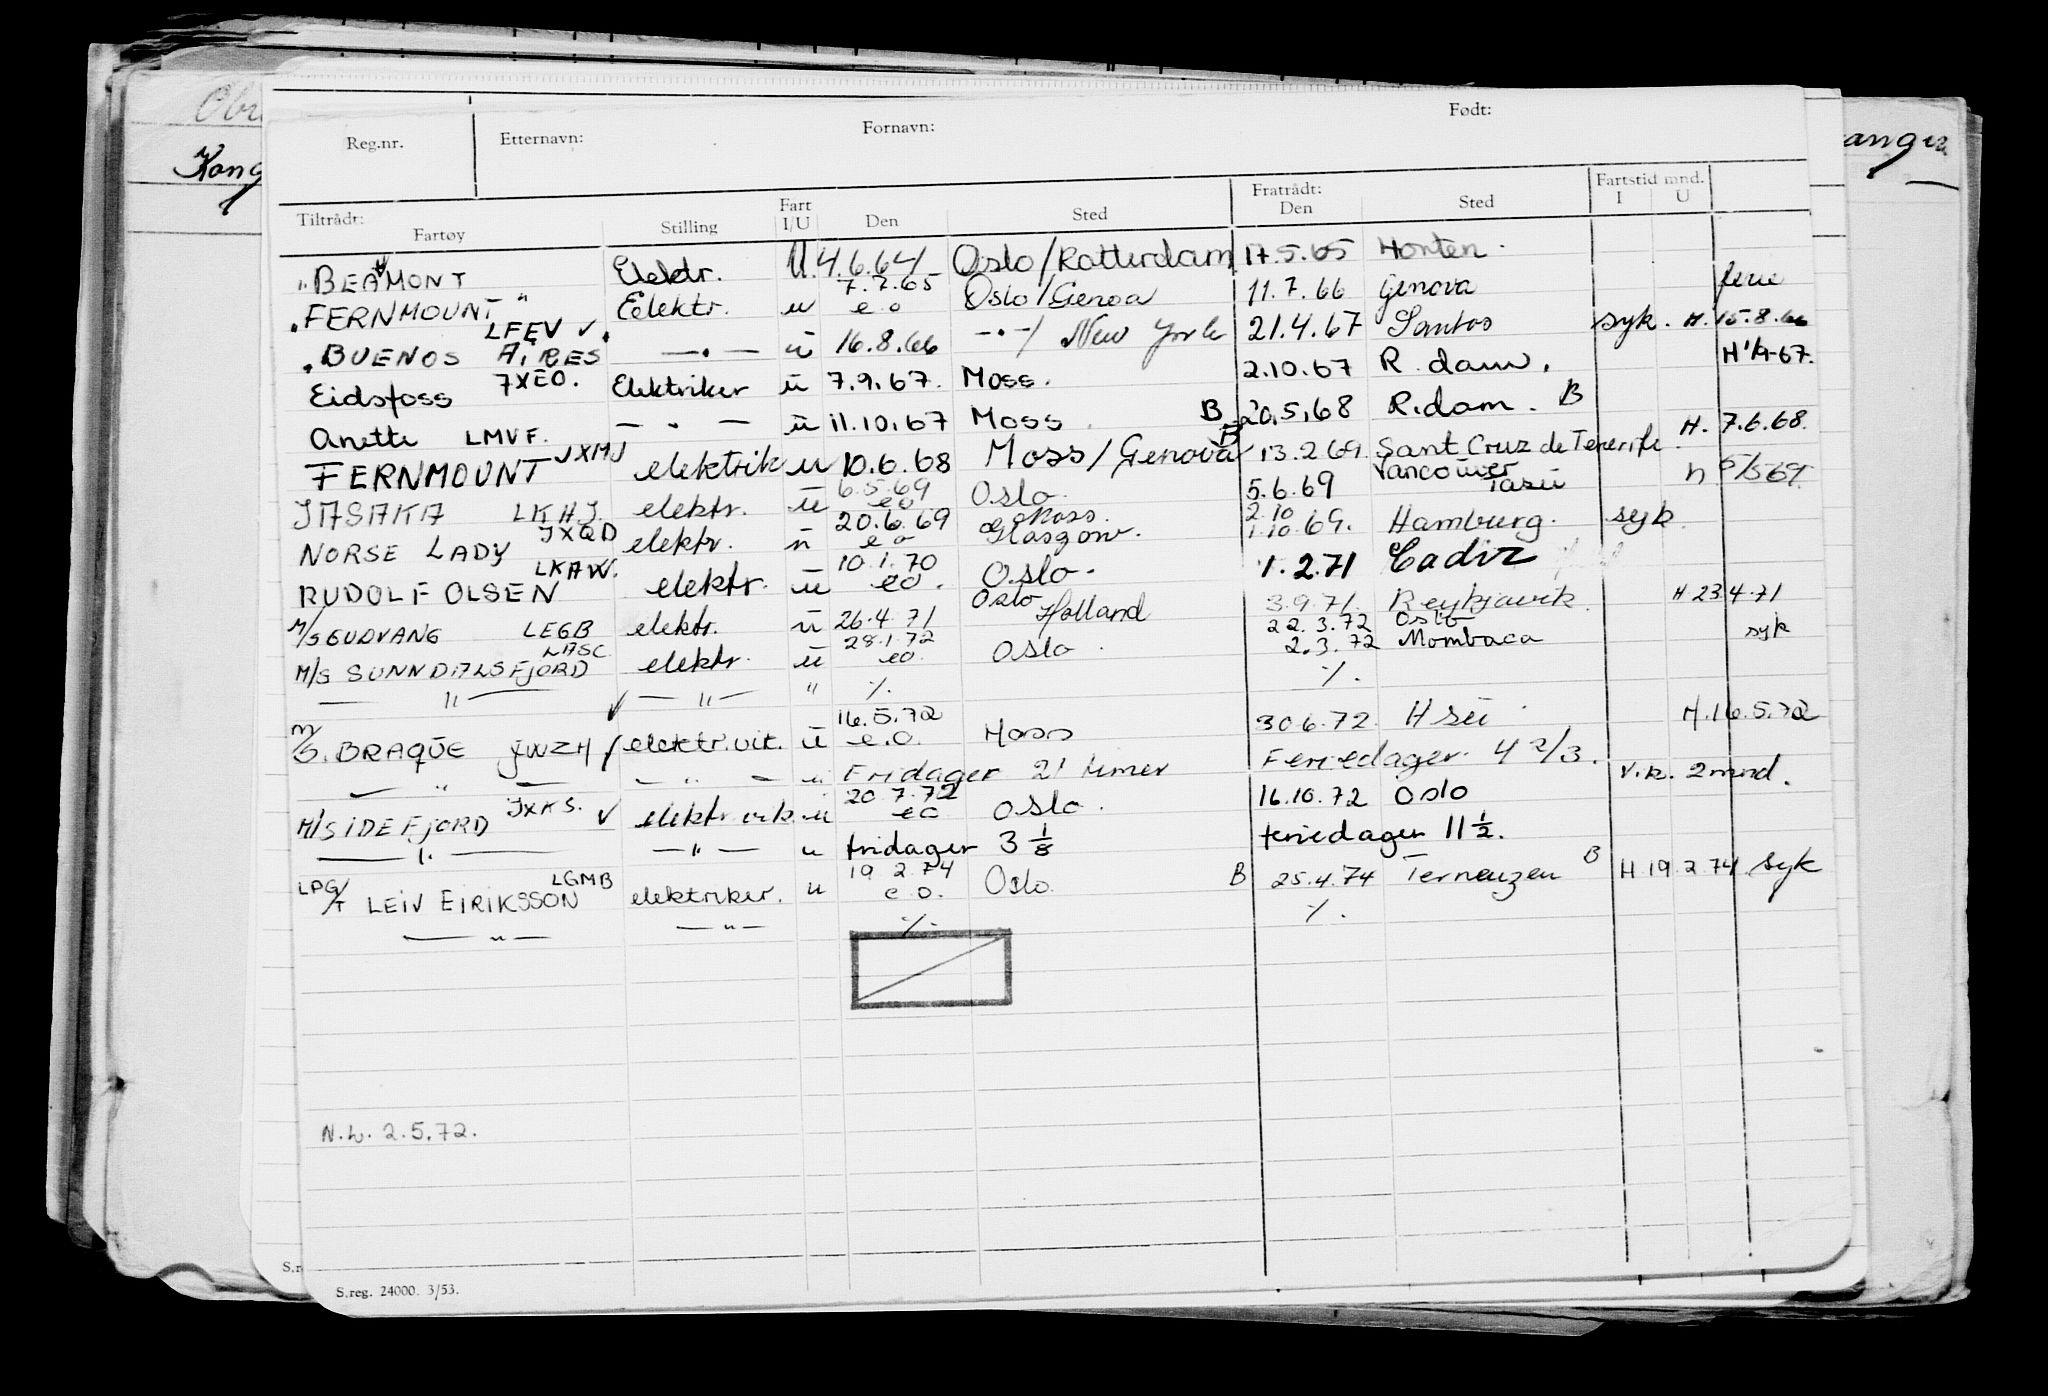 Reg.nr. Etternavn: Fornavn: Født:
Kong
anger
Tiltrådt: Fartøy Stilling Fart I/U Den Sted Fratrådt: Den Sted Fartstid mnd. I U
" BEAMONT Elektr. U. 4.6.64 Oslo/Rotterdam 17.5.65 Horten.
FERNMOUNT " LFEV ✓. Eelektr. u 7.7.65 e o Oslo/Genoa 11.7.66 Genova ferie
BUENOS AIRES —"— u 16.8.66 —"—/ New York 21.4.67 Santos syk. H. 15.8.66
Eidsfoss JXEO. Elektriker u 7.9.67. Moss. 2.10.67 R.dam. H 1/9-67.
Anette LMVF. — " — u 11.10.67 Moss. B 20.5.68 R.dam. B
FERNMOUNT JXMJ elektrik u 10.6.68 Moss/Genova B 13.2.69. Sant Cruz de Tenerife H. 7.6.68.
JASAKA LKHJ. elektr. u 6.5.69 eo Oslo. 5.6.69 Vancouver Tasu h 5/5 69.
NORSE LADY JXQD elektr. u 20.6.69 e o Moss. Glasgow. 2.10 1.10.69. Hamburg. syk.
RUDOLF OLSEN LKAW. elektr. u 10.1.70 eo. Oslo. 1.2.71 Cadiz
M/S GUDVANG LEGB elektr. u 26.4.71 Oslo Holland 3.9.71. Reykjavik. H 23.4.71
M/S SUNNDALSFJORD LASC elektr. u 28.1.72 eo. Oslo. 22.3.72 Oslo 2.3.72 Mombaca syk
— " — ✓ — " — " ·/. ·/.
M/S. BRAQUE JWZH / elektr.vik. u 16.5.72 e.o. Moss 30.6.72. H.16.5.72
— " — — " — u Fridager 21 timer Feriedager. 4 2/3. v.k. 2 mnd.
M/S IDEFJORD JXKS. ✓ elektr vik. u 20.7.72 eo Oslo. 16.10.72 Oslo
— " — — " — u fridager 3 1/8 feriedager 11 1/2.
LPG/T LEIV EIRIKSSON LGMB elektriker. u 19.2.74 e o. Oslo. B 25.4.74 Terneuzen B H.19.2.74 syk
— " — — " — ·/. ·/.
N.L. 2.5.72.
S.reg. 24000. 3/53.